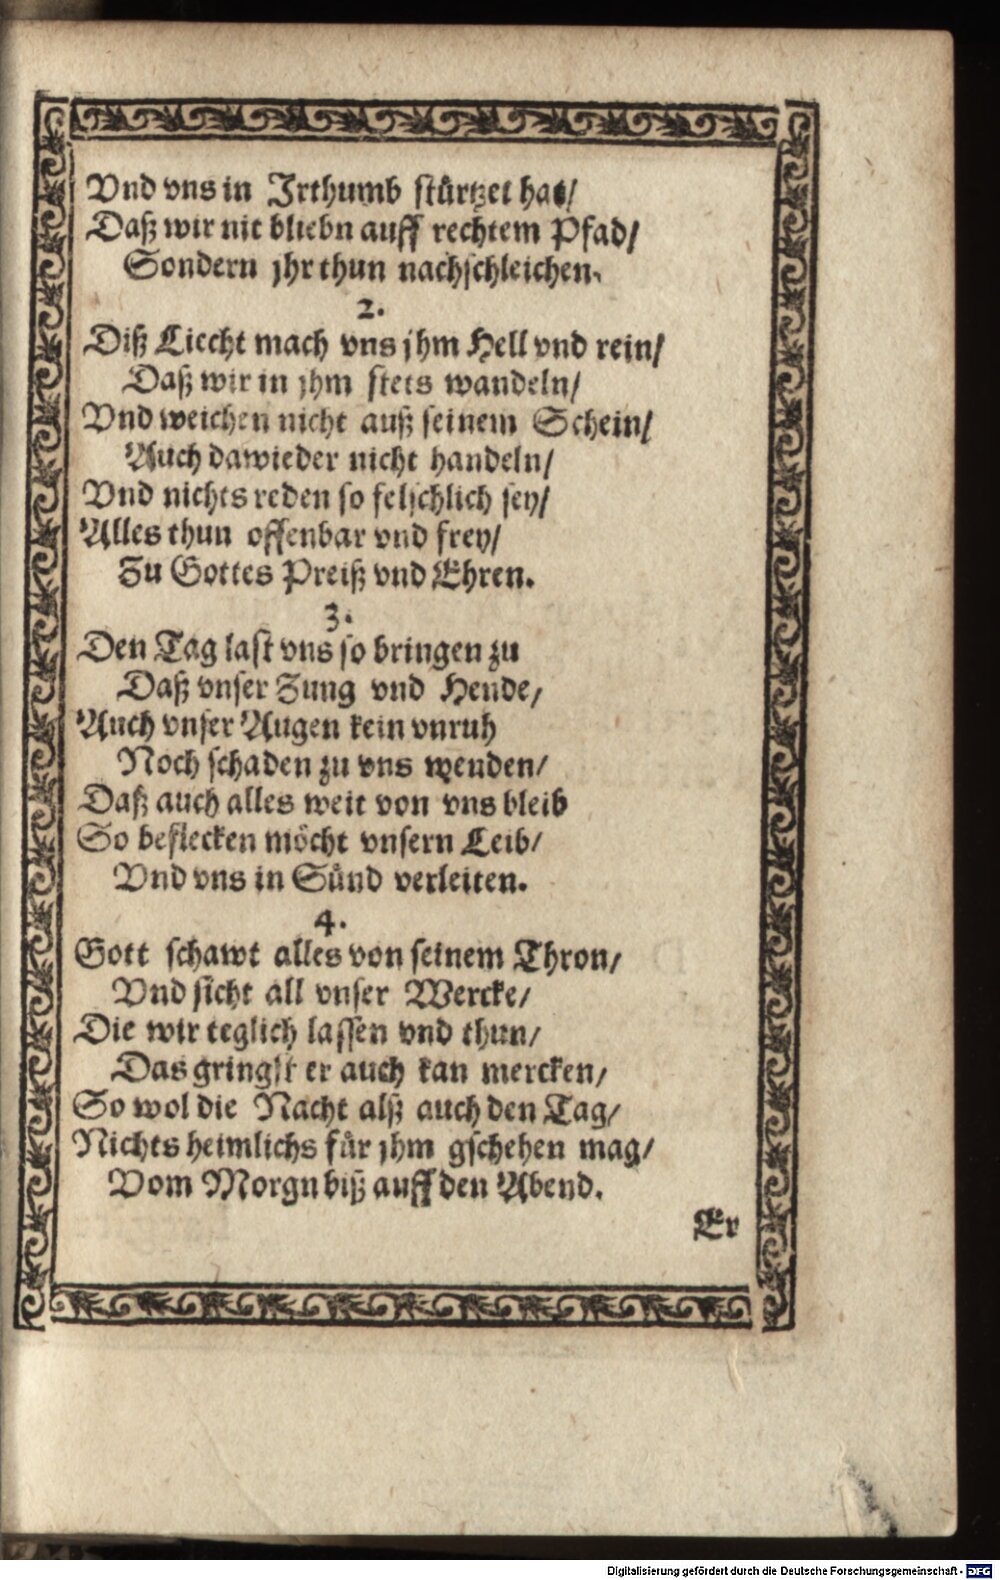 Vnd vns in Irthumb stürtzet hat/
Daß wir nit bliebn auff rechtem Pfad/
Sondern jhr thun nachschleichen.
2.
Diß Liecht mach vns jhm Hell vnd rein/
Daß wir in jhm stets wandeln/
Vnd weichen nicht auß seinem Schein/
Auch dawieder nicht handeln/
Vnd nichts reden so felschlich sey/
Alles thun offenbar vnd frey/
Zu Gottes Preiß vnd Ehren.
3.
Den Tag last vns so bringen zu
Daß vnser Zung vnd Hende/
Auch vnser Augen kein vnruh
Noch schaden zu vns wenden/
Daß auch alles weit von vns bleib
So beflecken möcht vnsern Leib/
Vnd vns in Sünd verleiten.
4.
Gott schawt alles von seinem Thron/
Vnd sicht all vnser Wercke/
Die wir teglich lassen vnd thun/
Das gringst er auch kan mercken/
So wol die Nacht alß auch den Tag/
Nichts heimlichs für jhm gschehen mag/
Vom Morgn biß auff den Abend.
Er
Digitalisierung gefördert durch die Deutsche Forschungsgemeinschaft - DFG